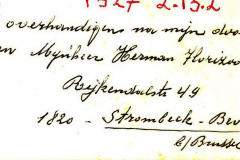 1927 2.15.2
overhandigens na mijn doo
an Mynheer Herman Florizoo
Rijkendalste 49
1820 - Strombeek - Bev
C/Brussel